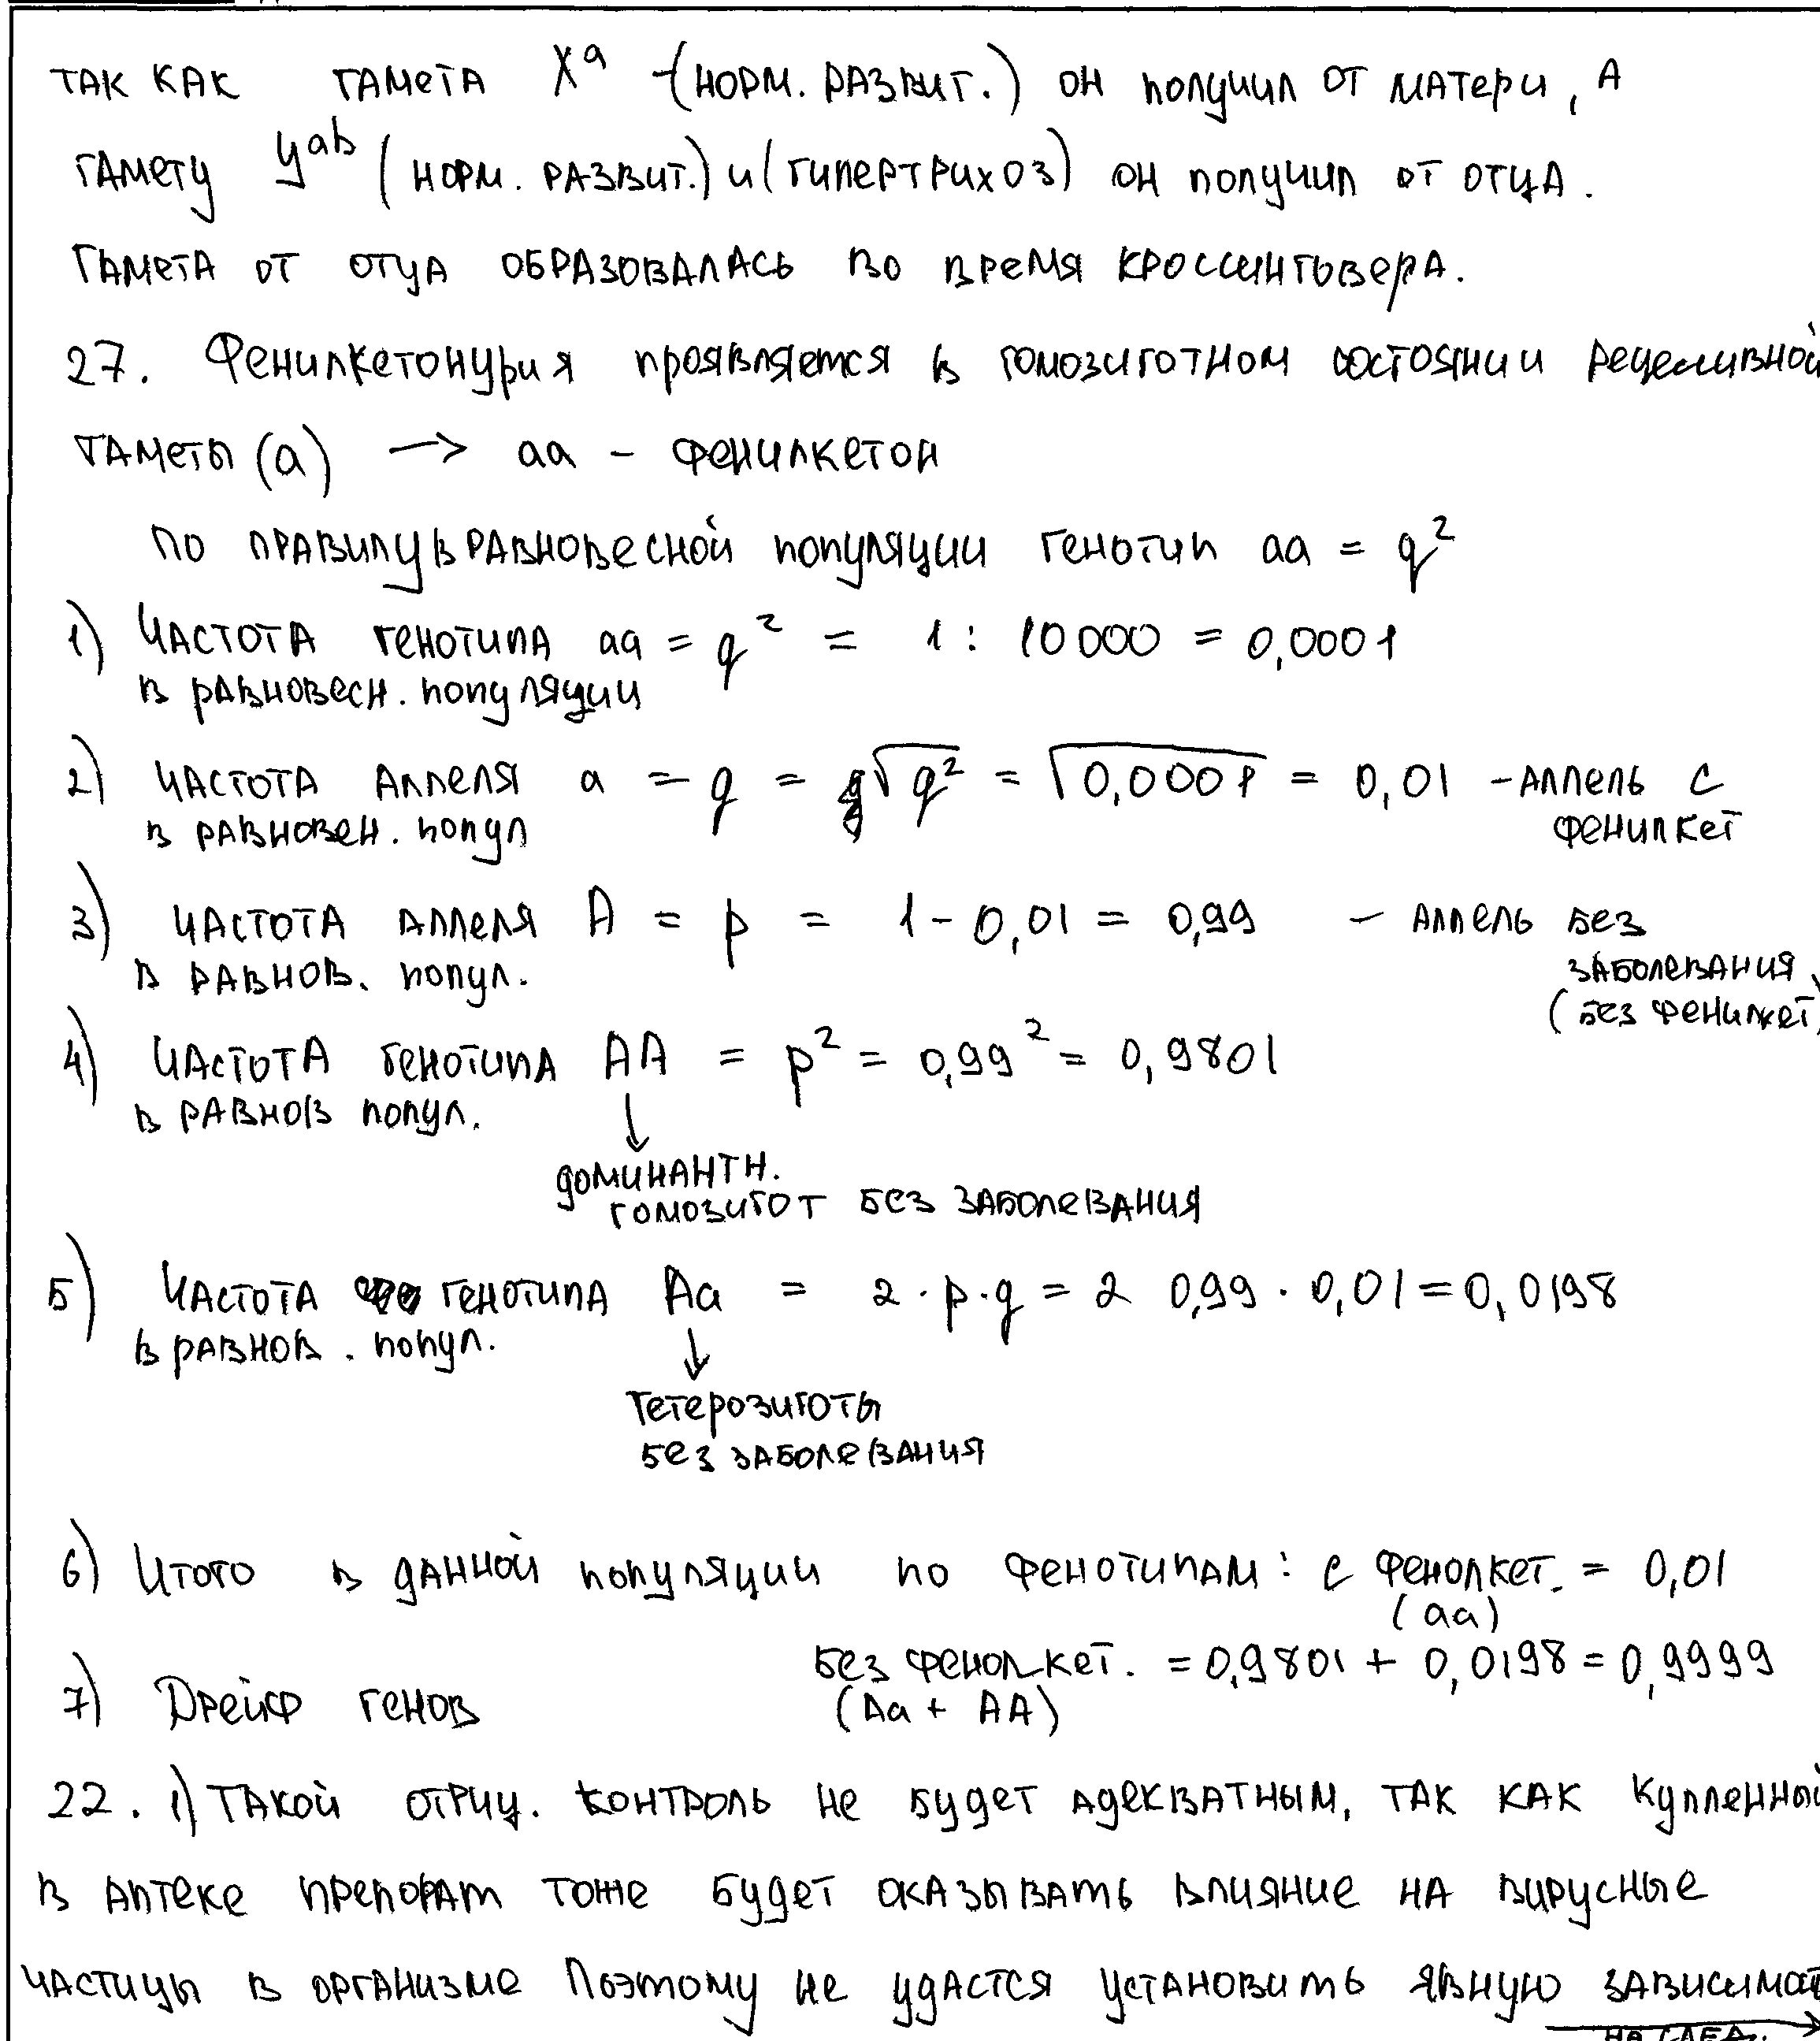 так как гамета Xᵃ -(норм. развит.) он получил от матери, а
гамету Yᵃᵇ (норм. развит.) и (гипертрихоз) он получил от отца.
Гамета от отца образовалась во время кроссинговера.
27. Фенилкетонурия проявляется в гомозиготном состоянии рецессивной
гаметы (а) → аа - фенилкетон
по правилу в равновесной популяции генотип аа = q²
1) Частота генотипа аа = q² = 1 : 10000 = 0,0001
в равновесн. популяции
2) частота аллеля а = q = √q² = √0,0001 = 0,01 - аллель с
в равновен. попул фенилкет
3) частота аллеля А = p = 1 - 0,01 = 0,99 - аллель без
в равнов. попул. заболевания
(без фенилкет)
4) Частота генотипа АА = p² = 0,99² = 0,9801
в равнов попул. ↓
доминантн.
гомозигот без заболевания
5) Частота генотипа Аа = 2 · p · q = 2 0,99 · 0,01 = 0,0198
в равнов. попул. ↓
Гетерозиготы
без заболевания
6) Итого в данной популяции по фенотипам: с фенолкет. = 0,01
(аа)
без фенолкет. = 0,9801 + 0,0198 = 0,9999
7) Дрейф генов (Аа + АА)
22. 1) Такой отриц. контроль не будет адекватным, так как купленный
в аптеке препорат тоже будет оказывать влияние на вирусные
частицы в организме Поэтому не удастся установить явную зависимост
на след.